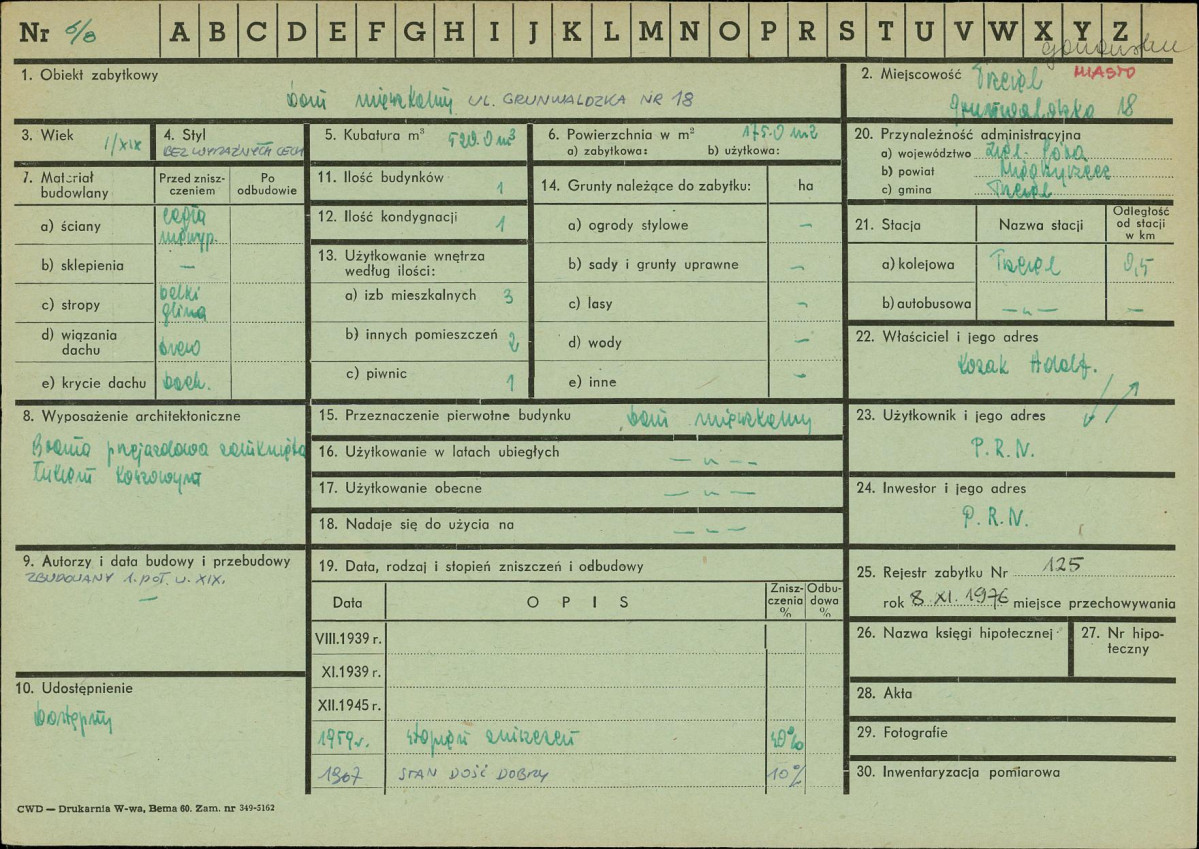 Nr 5/8 A B C D E F G H I J K L M N O P R S T U V W X Y Z
1. Obiekt zabytkowy
dom mieszkalny UL. GRUNWALDZKA NR 18
2. Miejscowość Trzciel MIASTO
Grunwaldzka 18
3. Wiek I/XIX
4. Styl
BEZ WYRAŹNYCH CECH
5. Kubatura m³ 520.0 m³
6. Powierzchnia w m² 175.0 m2
a) zabytkowa: b) użytkowa:
20. Przynależność administracyjna
a) województwo Ziel. Góra
b) powiat Międzyrzecz
c) gmina Trzciel
7. Materiał budowlany
Przed zniszczeniem
Po odbudowie
a) ściany cegła
b) sklepienia —
c) stropy belki
glina
d) wiązania dachu drewo
e) krycie dachu dach.
8. Wyposażenie architektoniczne
Brama przejazdowa zamknięta
łukiem koszowym
9. Autorzy i data budowy i przebudowy
ZBUDOWANY 1. POŁ. W. XIX.
—
10. Udostępnienie
dostępny
11. Ilość budynków 1
12. Ilość kondygnacji 1
13. Użytkowanie wnętrza
według ilości:
a) izb mieszkalnych 3
b) innych pomieszczeń 2
c) piwnic 1
14. Grunty należące do zabytku: ha
a) ogrody stylowe —
b) sady i grunty uprawne —
c) lasy —
d) wody —
e) inne —
15. Przeznaczenie pierwotne budynku dom mieszkalny
16. Użytkowanie w latach ubiegłych — „ —
17. Użytkowanie obecne — „ —
18. Nadaje się do użycia na — „ —
19. Data, rodzaj i stopień zniszczeń i odbudowy
Data O P I S Zniszczenia % Odbudowa %
VIII.1939 r.
XI.1939 r.
XII.1945 r.
1959 r. stopień zniszczeń
1967 STAN DOŚĆ DOBRY 10%
21. Stacja Nazwa stacji Odległość od stacji w km
a) kolejowa Trzciel 0,5
b) autobusowa — „ — —
22. Właściciel i jego adres
Kozak Adolf.
23. Użytkownik i jego adres
P.R.N.
24. Inwestor i jego adres
P.R.N.
25. Rejestr zabytku Nr 125
rok 8 XI. 1976 miejsce przechowywania
26. Nazwa księgi hipotecznej
27. Nr hipoteczny
28. Akta
29. Fotografie
30. Inwentaryzacja pomiarowa
CWD — Drukarnia W-wa, Bema 60. Zam. nr 349-5162